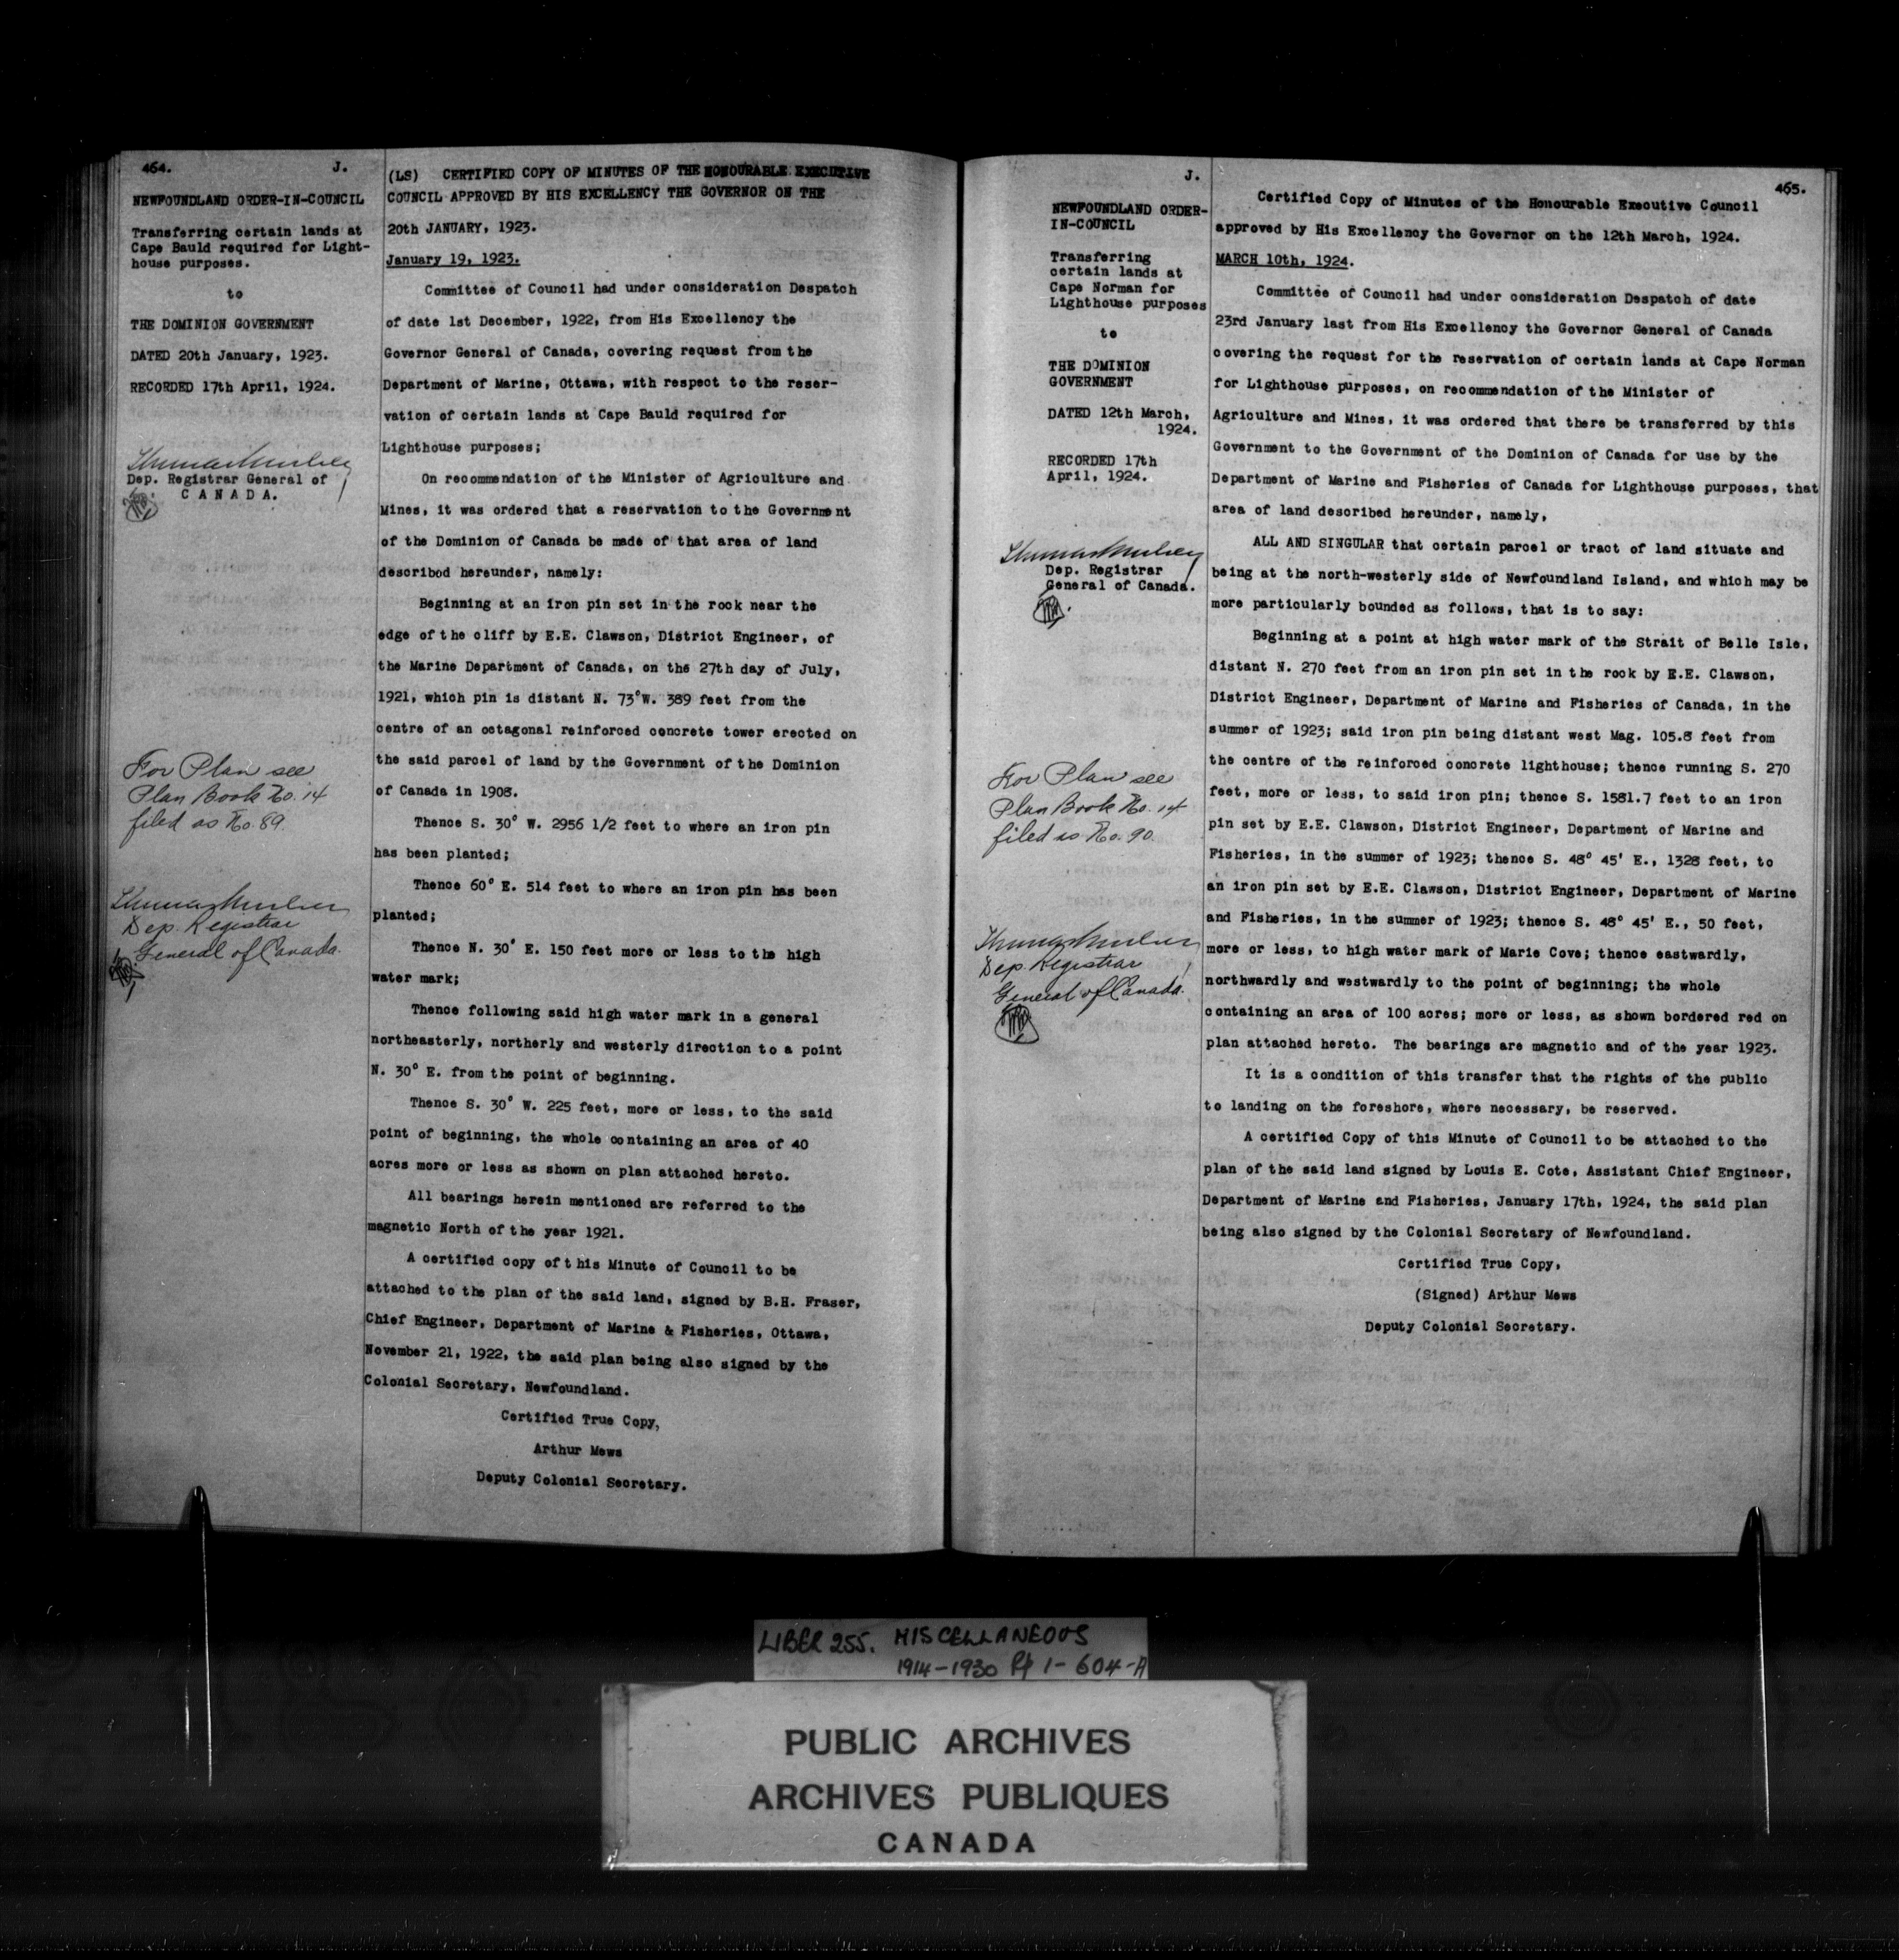 464.
J.
NEWFOUNDLAND ORDER-IN-COUNCIL
Transferring certain lands at
Cape Bauld required for Light-
house purposes.
to
THE DOMINION GOVERNMENT
DATED 20th January, 1923.
RECORDED 17th April, 1924.
Dep. Registrar General of
CANADA.
For Plan see
Plan Book No. 14
filed as No. 89.
Dep. Registrar
General of Canada.
(LS) CERTIFIED COPY OF MINUTES OF THE HONOURABLE EXECUTIVE
COUNCIL APPROVED BY HIS EXCELLENCY THE GOVERNOR ON THE
20th JANUARY, 1923.
January 19, 1923.
Committee of Council had under consideration Despatch
of date 1st December, 1922, from His Excellency the
Governor General of Canada, covering request from the
Department of Marine, Ottawa, with respect to the reser-
vation of certain lands at Cape Bauld required for
Lighthouse purposes;
On recommendation of the Minister of Agriculture and
Mines, it was ordered that a reservation to the Government
of the Dominion of Canada be made of that area of land
described hereunder, namely:
Beginning at an iron pin set in the rock near the
edge of the cliff by E.E. Clawson, District Engineer, of
the Marine Department of Canada, on the 27th day of July,
1921, which pin is distant N. 73° W. 389 feet from the
centre of an octagonal reinforced concrete tower erected on
the said parcel of land by the Government of the Dominion
of Canada in 1908.
Thence S. 30° W. 2956 1/2 feet to where an iron pin
has been planted;
Thence 60° E. 514 feet to where an iron pin has been
planted;
Thence N. 30° E. 150 feet more or less to the high
water mark;
Thence following said high water mark in a general
northeasterly, northerly and westerly direction to a point
N. 30° E. from the point of beginning.
Thence S. 30° W. 225 feet, more or less, to the said
point of beginning, the whole containing an area of 40
acres more or less as shown on plan attached hereto.
All bearings herein mentioned are referred to the
magnetic North of the year 1921.
A certified copy of this Minute of Council to be
attached to the plan of the said land, signed by B.H. Fraser,
Chief Engineer, Department of Marine & Fisheries, Ottawa,
November 21, 1922, the said plan being also signed by the
Colonial Secretary, Newfoundland.
Certified True Copy,
Arthur Mews
Deputy Colonial Secretary.
J.
465.
NEWFOUNDLAND ORDER-
IN-COUNCIL
Transferring
certain lands at
Cape Norman for
Lighthouse purposes
to
THE DOMINION
GOVERNMENT
DATED 12th March,
1924.
RECORDED 17th
April, 1924.
Dep. Registrar
General of Canada.
For Plan see
Plan Book No. 14
filed as No. 90.
Dep. Registrar
General of Canada.
Certified Copy of Minutes of the Honourable Executive Council
approved by His Excellency the Governor on the 12th March, 1924.
MARCH 10th, 1924.
Committee of Council had under consideration Despatch of date
23rd January last from His Excellency the Governor General of Canada
covering the request for the reservation of certain lands at Cape Norman
for Lighthouse purposes, on recommendation of the Minister of
Agriculture and Mines, it was ordered that there be transferred by this
Government to the Government of the Dominion of Canada for use by the
Department of Marine and Fisheries of Canada for Lighthouse purposes, that
area of land described hereunder, namely,
ALL AND SINGULAR that certain parcel or tract of land situate and
being at the north-westerly side of Newfoundland Island, and which may be
more particularly bounded as follows, that is to say:
Beginning at a point at high water mark of the Strait of Belle Isle,
distant N. 270 feet from an iron pin set in the rock by E.E. Clawson,
District Engineer, Department of Marine and Fisheries of Canada, in the
summer of 1923; said iron pin being distant west Mag. 105.8 feet from
the centre of the reinforced concrete lighthouse; thence running S. 270
feet, more or less, to said iron pin; thence S. 1581.7 feet to an iron
pin set by E.E. Clawson, District Engineer, Department of Marine and
Fisheries, in the summer of 1923; thence S. 48° 45' E., 1328 feet, to
an iron pin set by E.E. Clawson, District Engineer, Department of Marine
and Fisheries, in the summer of 1923; thence S. 48° 45' E., 50 feet,
more or less, to high water mark of Marie Cove; thence eastwardly,
northwardly and westwardly to the point of beginning; the whole
containing an area of 100 acres; more or less, as shown bordered red on
plan attached hereto. The bearings are magnetic and of the year 1923.
It is a condition of this transfer that the rights of the public
to landing on the foreshore, where necessary, be reserved.
A certified Copy of this Minute of Council to be attached to the
plan of the said land signed by Louis E. Cote, Assistant Chief Engineer,
Department of Marine and Fisheries, January 17th, 1924, the said plan
being also signed by the Colonial Secretary of Newfoundland.
Certified True Copy,
(Signed) Arthur Mews
Deputy Colonial Secretary.
LIBER 255. MISCELLANEOUS
1914-1930 Pp 1-604-A
PUBLIC ARCHIVES
ARCHIVES PUBLIQUES
CANADA